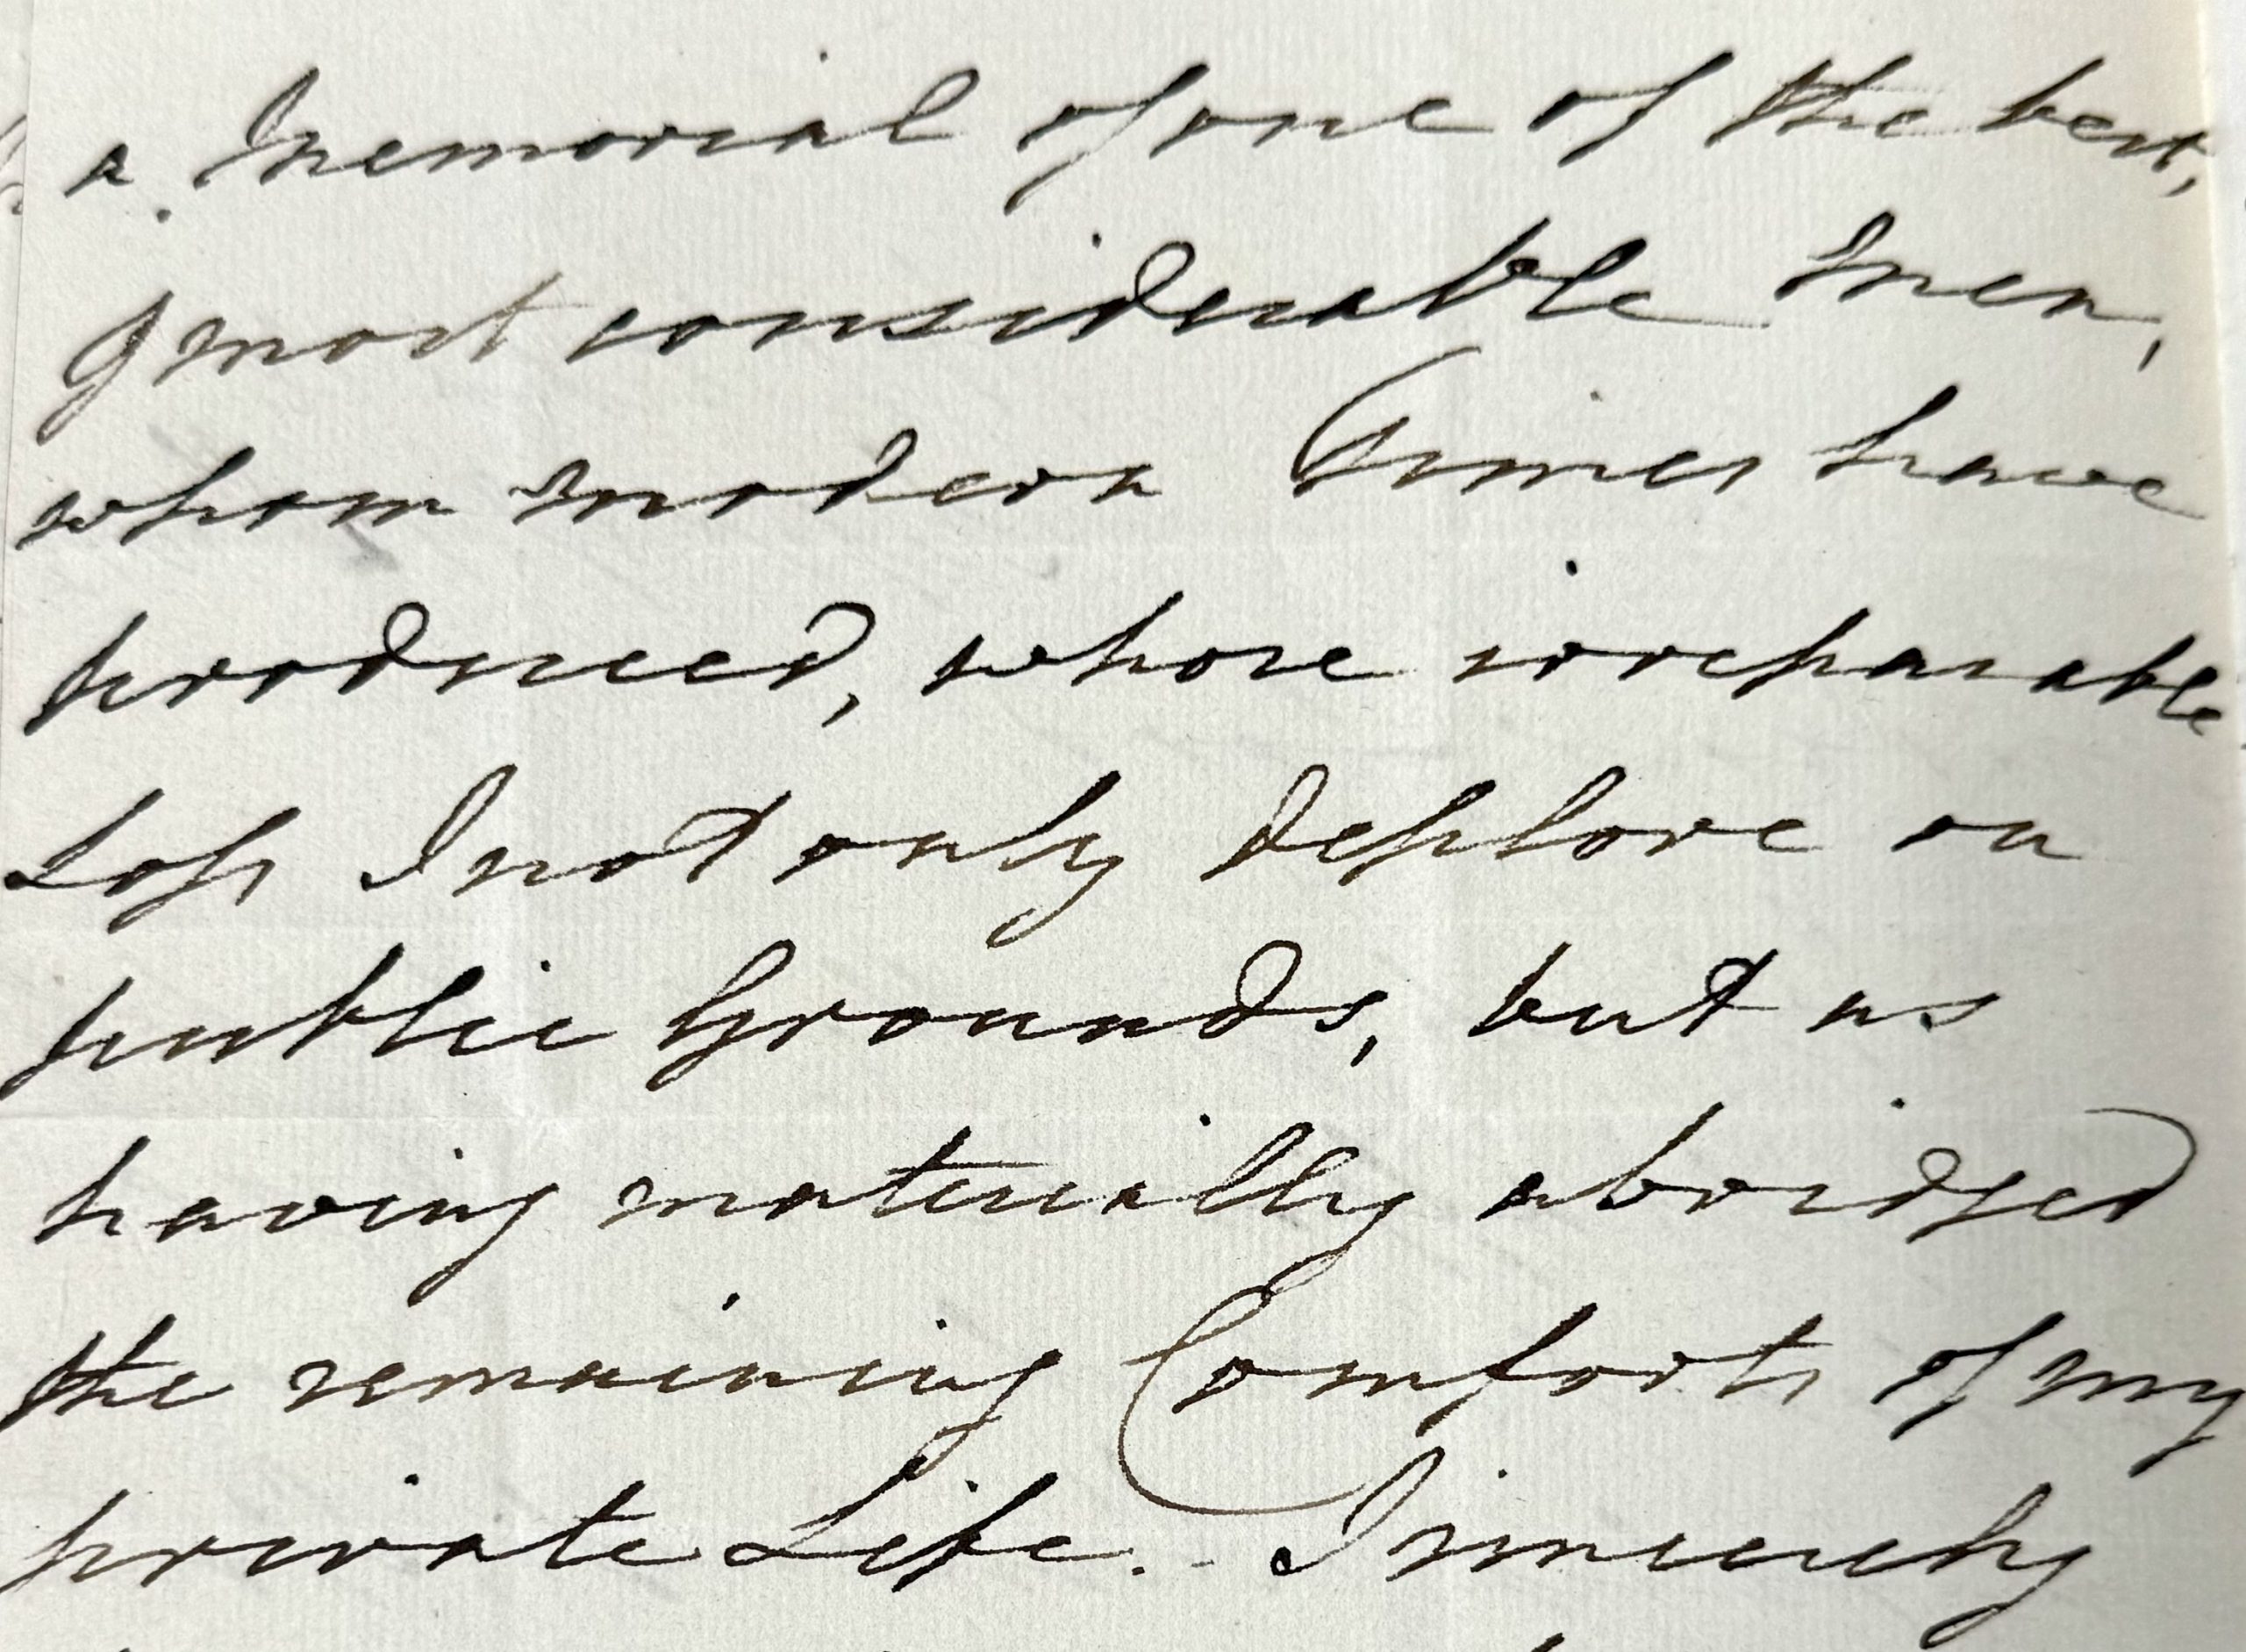 a Memorial of one of the best,
& most considerable Men,
whom modern Times have
produced, whose irreparable
Loss I not only deplore on
public Grounds, but as
having materially abridged
the remaining Comforts of my
private Life. - I sincerely